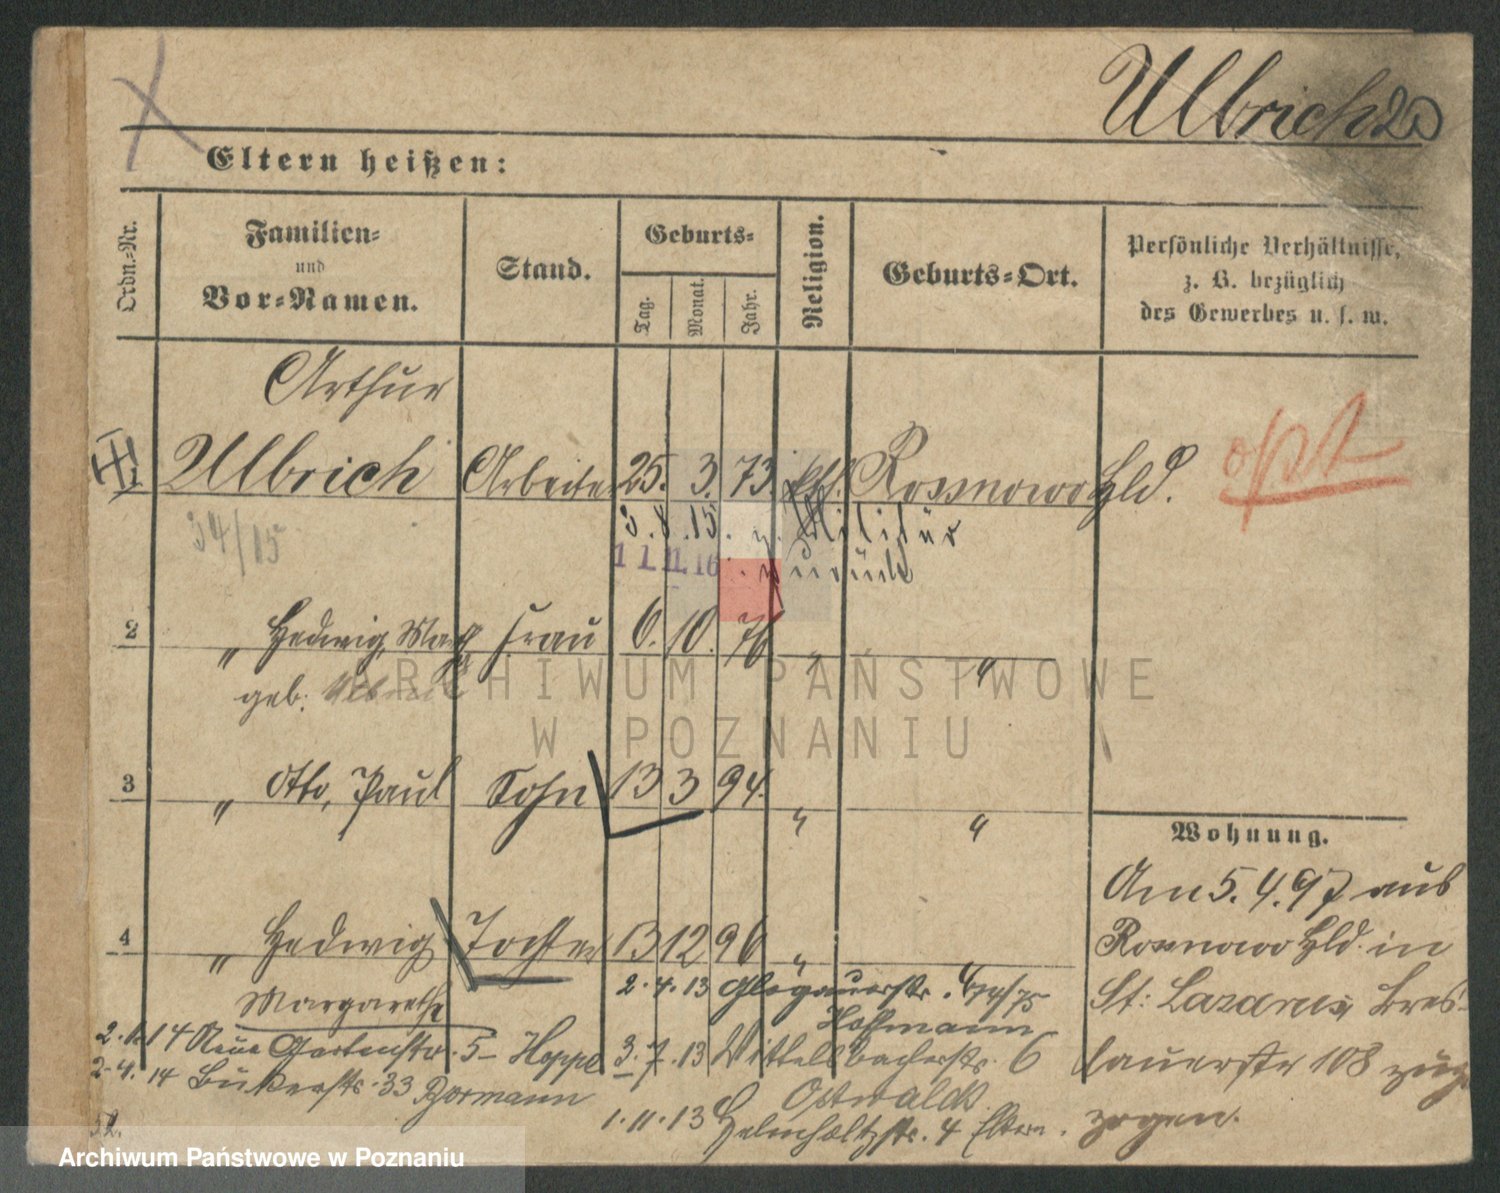 Ulbrich
Eltern heißen:
Ordn.-Nr.
Familien-
und
Vor-Namen.
Stand.
Geburts-
Tag.
Monat.
Jahr.
Religion.
Geburts-Ort.
Persönliche Verhältnisse,
z. B. bezüglich
des Gewerbes u. s. w.
Arthur
1 Ulbrich Arbeiter 25. 3. 73. kth. Rosnowo Hld. opt
34/15
3.8.15. z. Militär
11.11.16. zurück
2 " Hedwig, Frau 6. 10. 76 " "
geb.
3 " Otto, Paul Sohn 13 3 94. " "
4 " Hedwig Tochter 13 12 96 " "
Margarethe
Wohnung.
Am 5.4.97 aus
Rosnowo Hld. in
St: Lazarus, Bres-
lauerstr 108 zuge
zogen.
2.4.13 Glogauerstr.
Hoffmann
3.7.13 Wittelsbacherstr. 6
Ostwaldt
1.11.13 Helmholtzstr. 4 Eltern.
2.1.14 Neue Gartenstr. 5- Hoppe
2.4.14 Bukerstr. 33 Bormann
ARCHIWUM PAŃSTWOWE
W POZNANIU
Archiwum Państwowe w Poznaniu